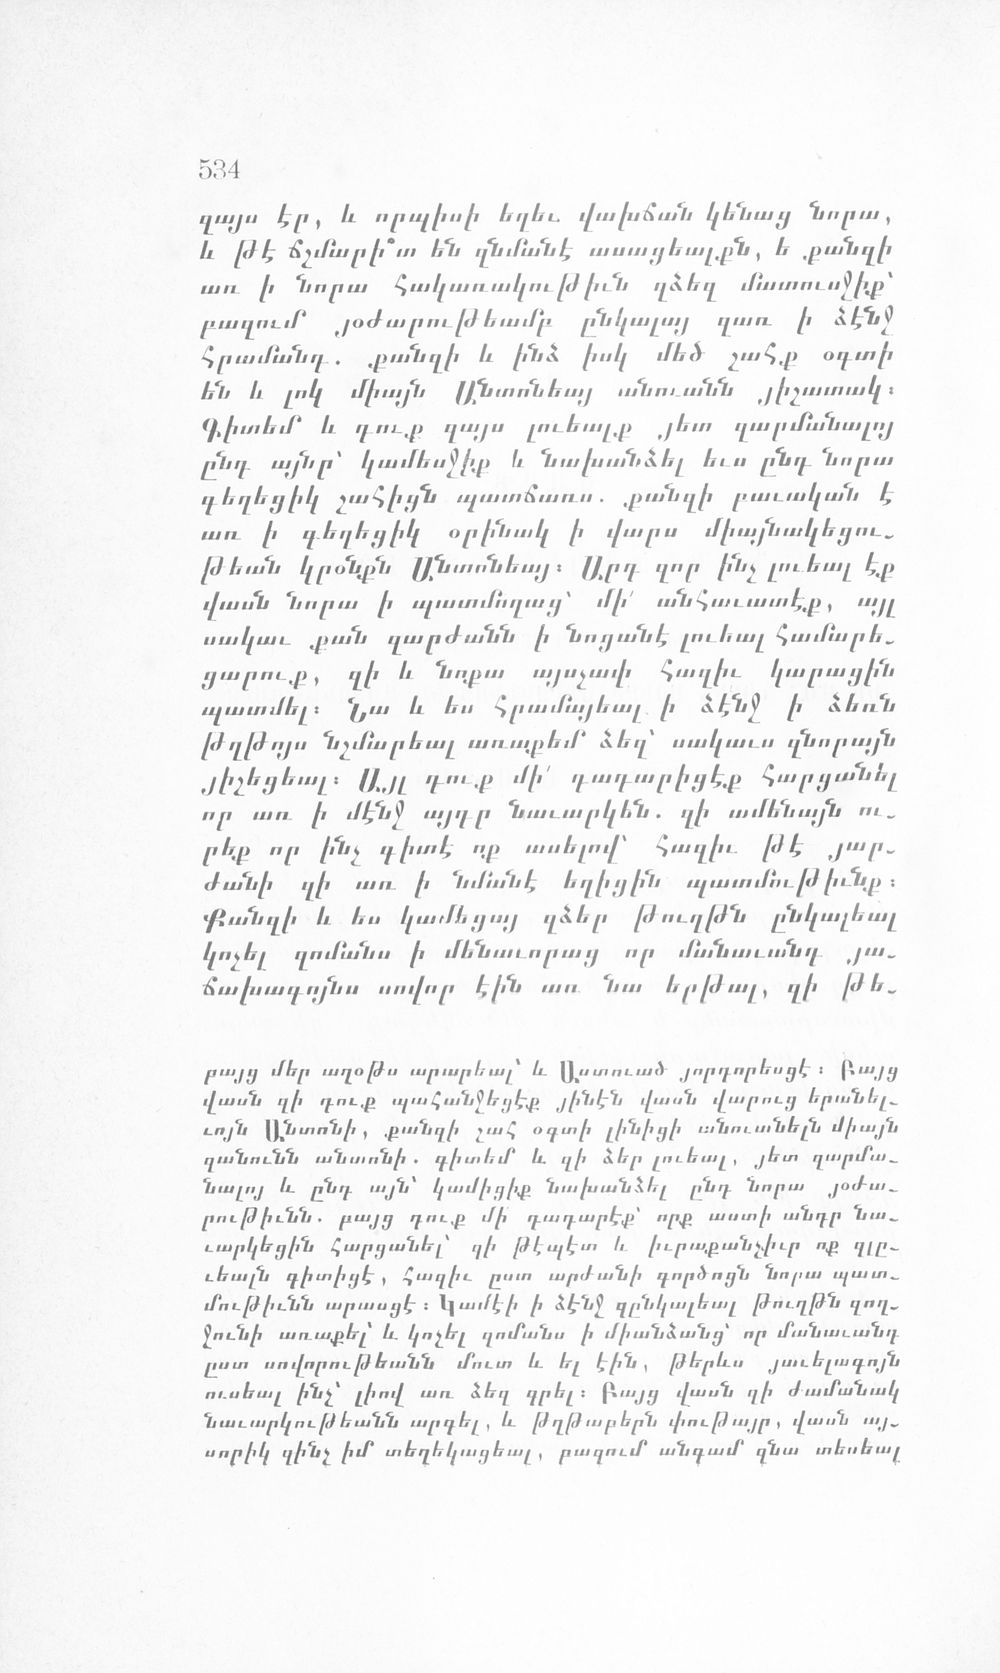 534
զայս էր, և որպիսի եղեւ վախճան կենաց նորա,
և թէ ճշմարի՞տ են զնմանէ ասացեալքն, ե քանզի
առ ի նորա հակառակութիւն զձեզ մատուսջիք՝
բազում յօժարութեամբ ընկալայ զառ ի ձէնջ
հրամանդ. քանզի և ինձ իսկ մեծ շահք օգտի
են և լոկ միայն Անտոնեայ անուանն յիշատակ։
Գիտեմ և դուք զայս լուեալք յետ զարմանալոյ
ընդ այնր՝ կամեսջիք և նախանձել եւս ընդ նորա
գեղեցիկ շահիցն պատճառս. քանզի բաւական է
առ ի գեղեցիկ օրինակ ի վարս միայնակեցու֊
թեան կրօնքն Անտոնեայ։ Արդ զոր ինչ լուեալ էք
վասն նորա ի պատմողաց՝ մի՛ անհաւատէք, այլ
սակաւ քան զարժանն ի նոցանէ լուեալ համարե֊
ցարուք, զի և նոքա այսչափ հազիւ կարացին
պատմել։ Նա և ես հրամայեալ ի ձէնջ ի ձեռն
թղթոյս նշմարեալ առաքեմ ձեզ՝ սակաւս զնորայն
յիշեցեալ։ Այլ դուք մի՛ դադարիցէք հարցանել
որ առ ի մէնջ այդր նաւարկեն. զի ամենայն ու֊
րեք որ ինչ գիտէ ոք ասելով՝ հազիւ թէ յար֊
ժանի զի առ ի նմանէ եղիցին պատմութիւնք։
Քանզի և ես կամեցայ զձեր թուղթն ընկալեալ
կոչել զոմանս ի մենաւորաց որ մանաւանդ յա֊
ճախագոյնս սովոր էին առ նա երթալ, զի թե֊
բայց մեր աղօթս արարեալ՝ և Աստուած յորդորեսցէ։ Բայց
վասն զի դուք պահանջեցէք յինէն վասն վարուց երանել֊
ւոյն Անտոնի, քանզի շահ օգտի լինիցի անուանելն միայն
զանունն անտոնի. գիտեմ և զի ձեր լուեալ, յետ զարմա֊
նալոյ և ընդ այն՝ կամիցիք նախանձել ընդ նորա յօժա֊
րութիւնն. բայց դուք մի դադարէք՝ որք աստի անդր նա֊
ւարկեցին հարցանել՝ զի թէպէտ և իւրաքանչիւր ոք զլը֊
ւեալն գիտիցէ, հազիւ ըստ արժանի գործոցն նորա պատ֊
մութիւնն արասցէ։ Կամէի ի ձէնջ զընկալեալ թուղթն զող֊
ջունի առաքել՝ և կոչել զոմանս ի միանձանց՝ որ մանաւանդ
ըստ սովորութեանն մուտ և ել էին, թերևս յաւելագոյն
ուսեալ ինչ՝ լիով առ ձեզ գրել։ Բայց վասն զի ժամանակ
նաւարկութեանն արգել, և թղթաբերն փութայր, վասն այ֊
սորիկ զինչ իմ տեղեկացեալ, բազում անգամ զնա տեսեալ